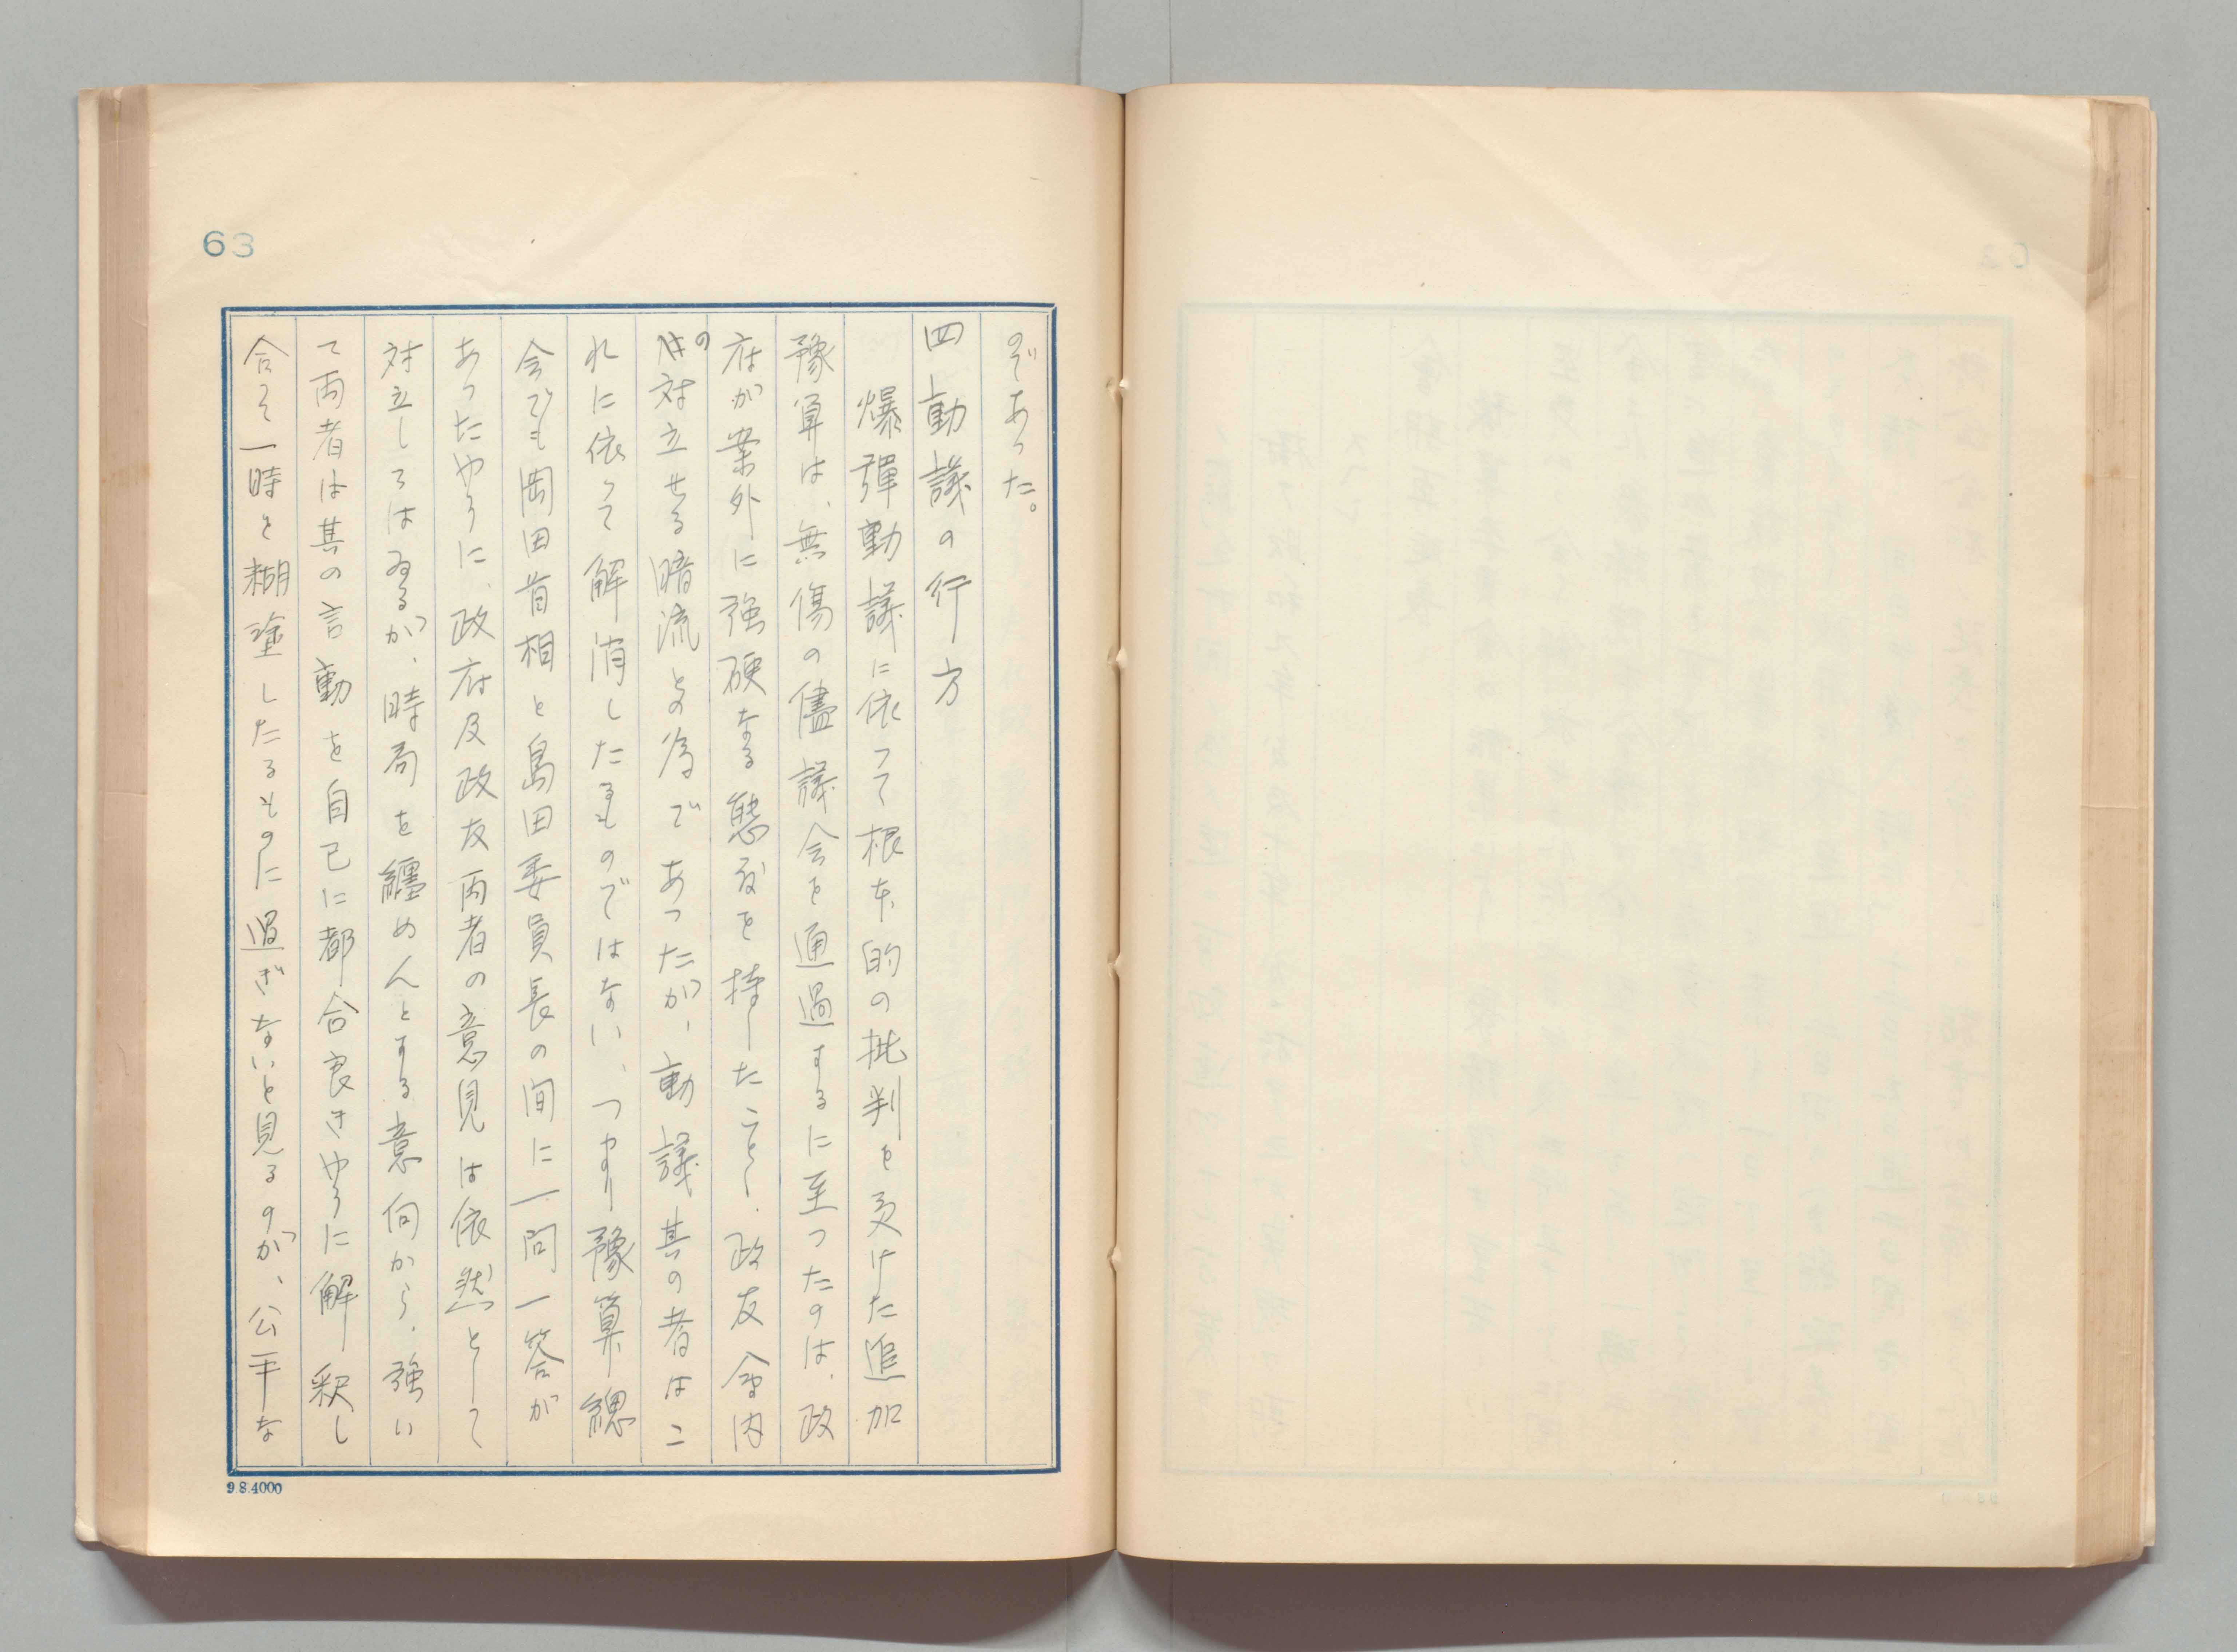 63
のであった。
四動議の行方
爆弾動議に依って根本的の批判を受けた追加
豫算は、無傷の儘議会を通過するに至ったのは、政
府が案外に強硬なる態度を持したこと、政友会内
の対立せる暗流との為であったが、動議其の者はこ
れに依って解消したるものではない、つまり豫算総
会でも岡田首相と島田委員長の間に一問一答が
あったやうに、政府及政友両者の意見は依然として
対立してはゐるが、時局を纏めんとする意向から、強い
て両者は其の言動を自己に都合良きやうに解釈し
合って一時を糊塗したるものに過ぎないと見るのが、公平な
9.8.4000